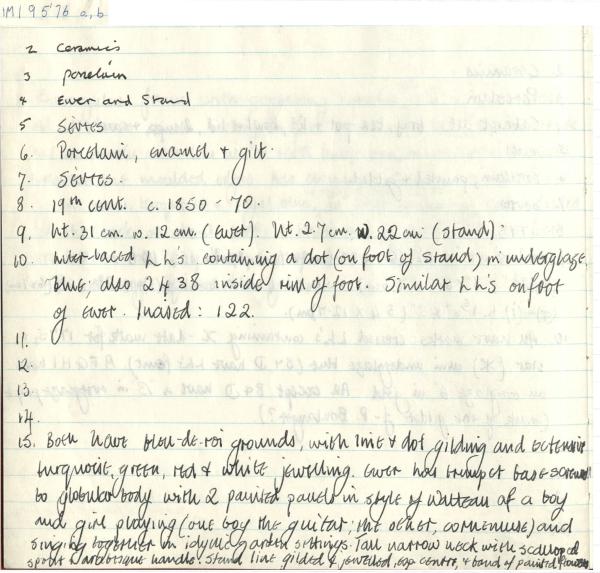 IM 195'76 a,b
2 Ceramics
3 Porcelain
4 Ewer and Stand
5 Sèvres
6. Porcelain, enamel & gilt.
7. Sèvres.
8. 19th cent. c. 1850 - 70.
9. Ht. 31 cm. w. 12 cm. (Ewer). Ht. 2.7 cm. W. 22 cm (Stand).
10. Inter-laced L L's containing a dot (on foot of stand) in underglaze
blue, also 2438 inside rim of foot. Similar LL's on foot
of Ewer. Incised: 122.
11.
12.
13
14.
15. Both have bleu-de-roi grounds, with line & dot gilding and extensive
turquoise, green, red & white jewelling. Ewer has trumpet base screwed
to globular body with 2 painted panels in style of Watteau of a boy
and girl playing (one boy the guitar; the other, cornemuse) and
singing together in idyllic garden settings. Tall narrow neck with scalloped
spout & arabesque handle. Stand line gilded & jewelled, centre, & band of painted flowers